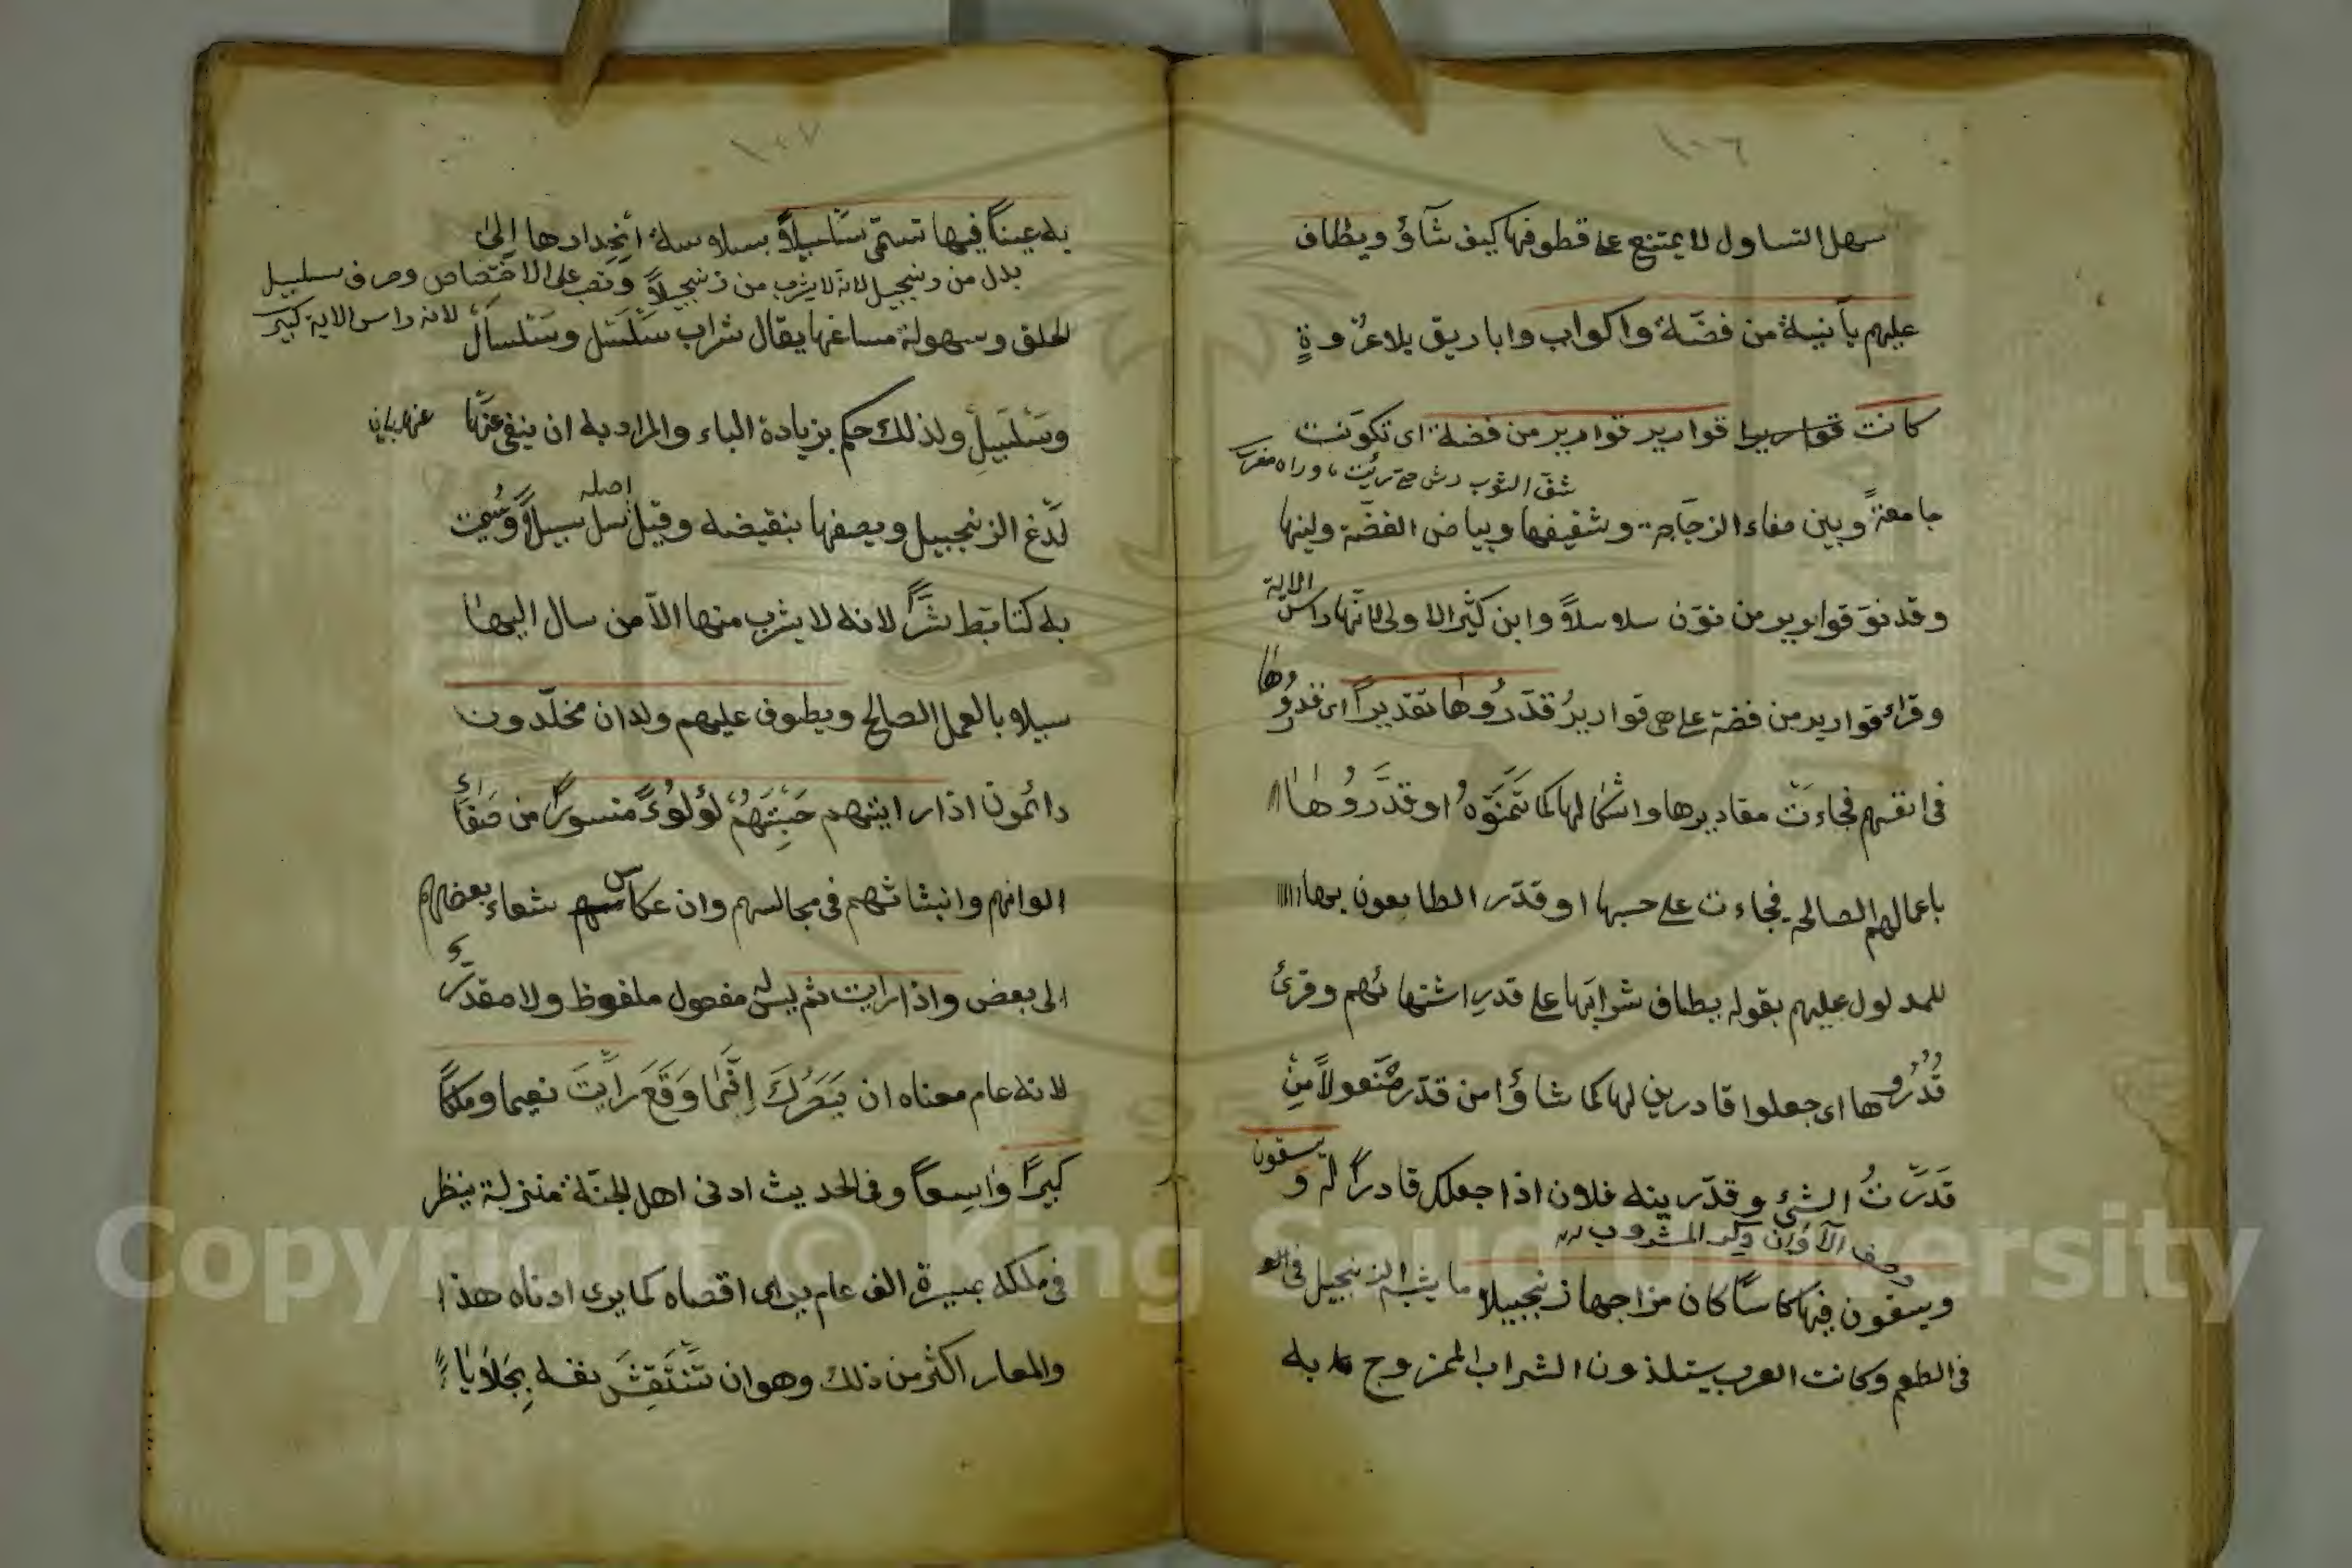 ١٠٦
سهل التساول لا يمتنع على قطوفها كيف شآؤ ويطاف
عليهم بآنية من فضّة واكواب واباريق بلا عُرْوةٍ
كانت قواريرا قوارير قوارير من فضة اى تكونت
شق الثوب
جامعةً وبين صفاء الزجاجة وشفيفها وبياض الفضّة ولينها
وقد نوّن قوارير من نوّن سلاسلاً وابن كثير الاولى لانها راس الاية
وقرئ قوارير من فضة على هى قوارير قدّرُوها تقديراً اى قدروها
فى انفسهم فجاءَت مقاديرها واشكالها كما تَمَنَّوْهُ او قدَّرُوها
باعمالهم الصالحة فجاءت على حسبها او قدّر الطايعون بها
للمدلول عليهم بقوله يطاف شرابَها على قدرِ اشتهائهم وقرئ
قُدُرُوها اى جعلوا قادرين لها كما شاؤا من قدّر منعولاً مِن
قدَرْتُ الشئ وقدّرينه فلان اذا جعلك قادراً له و يسقون
وصف الآوان ذكر المشروب
ويسقون فيها كاساً كان مزاجها زنجبيلا ما يشبه الزنجبيل فى
فى الطعم وكانت العرب يستلذون الشراب الممزوج به
١٠٧
به عيناً فيها تسمّى سَلسبيلاً بسلاسة انحدارها اِلى
بدل من زنجبيل لانه لا يشرب من زنجبيلاً ونصب على الاختصاص وصرف سلسبيل
لانه راس الاية كبير
الحلق وسهولة مساغها يقال شراب سَلْسَل وسَلسال
وسَلسَبيل ولذلك حكم بزيادة الباء والمراد به ان ينفى عنها
لَدْغ الزنجبيل ويصفها بنقيضه وقيل اصله سل سبيلاً وسُمِّيت
به كتابّط شرّاً لانه لا يشرب منها الاّ من سال اليها
سبيلا بالعمل الصالح ويطوف عليهم ولدان مخلّدون
دائمون اذا رايتهم حَسِبْتَهُمْ لُؤلُوءً منسوراً من صَفَاءِ
الوانهم وانبثاثهم فى مجالسهم وانعكاس شعاء بعضهم
الى بعض واذا رايت ثم ليس له مفعول ملفوظ ولا مقدر
لانه عام معناه ان بَصَرَكَ اينَما وَقَعَ رَاَيْتَ نعيما وملكاً
كبيراً واسِعاً وفى الحديث ادنى اهل الجنّة منزلة ينظر
فى ملكه مسيرة الف عام يرى اقصاه كما يرى ادناه هذا
والمعار اكثر من ذلك وهو ان تَنْتَقِشَ نفسه بِجَلاَيا
Copyright © King Saud University